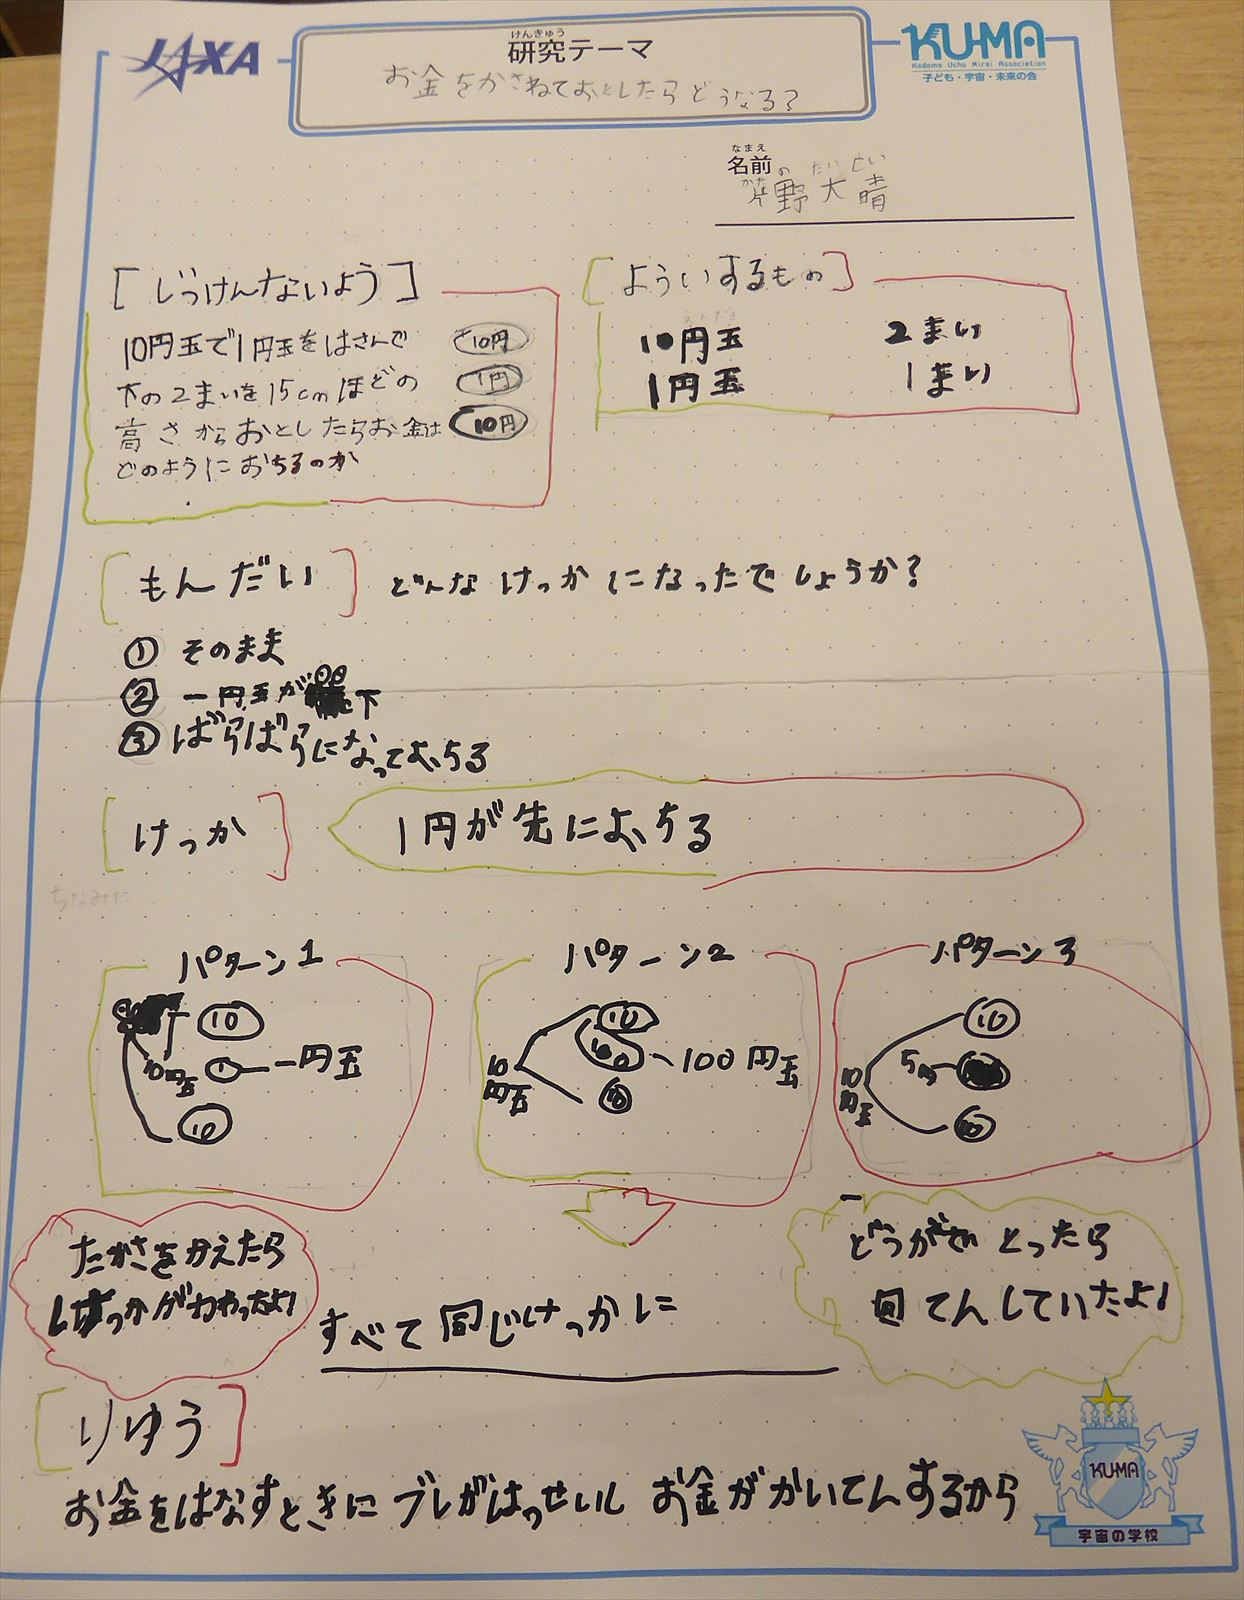 JAXA
けんきゅう
研究テーマ
お金をかさねておとしたらどうなる?
KU-MA
Kodomo Uchu Mirai Association
子ども・宇宙・未来の会
なまえ
名前
かた の たい せい
片野 大晴
[じっけんないよう]
10円玉で1円玉をはさんで
下の2まいを15cmほどの
高さからおとしたらお金は
どのようにおちるのか
10円
1円
10円
[よういするもの]
えんだま
10円玉 2まい
1円玉 1まい
[もんだい] どんなけっかになったでしょうか?
① そのまま
② 一円玉が下
③ ばらばらになっておちる
[けっか] 1円が先におちる
ちなみに
パターン1
10
10円玉 1 一円玉
10
パターン2
10
100 100円玉
10円玉
10
パターン3
10
5円
10円玉
10
たかさをかえたら
けっかがかわったよ!
すべて同じけっかに
どうがでとったら
回てんしていたよ!
[りゆう]
お金をはなすときにブレがはっせいし お金がかいてんするから
KU-MA
宇宙の学校